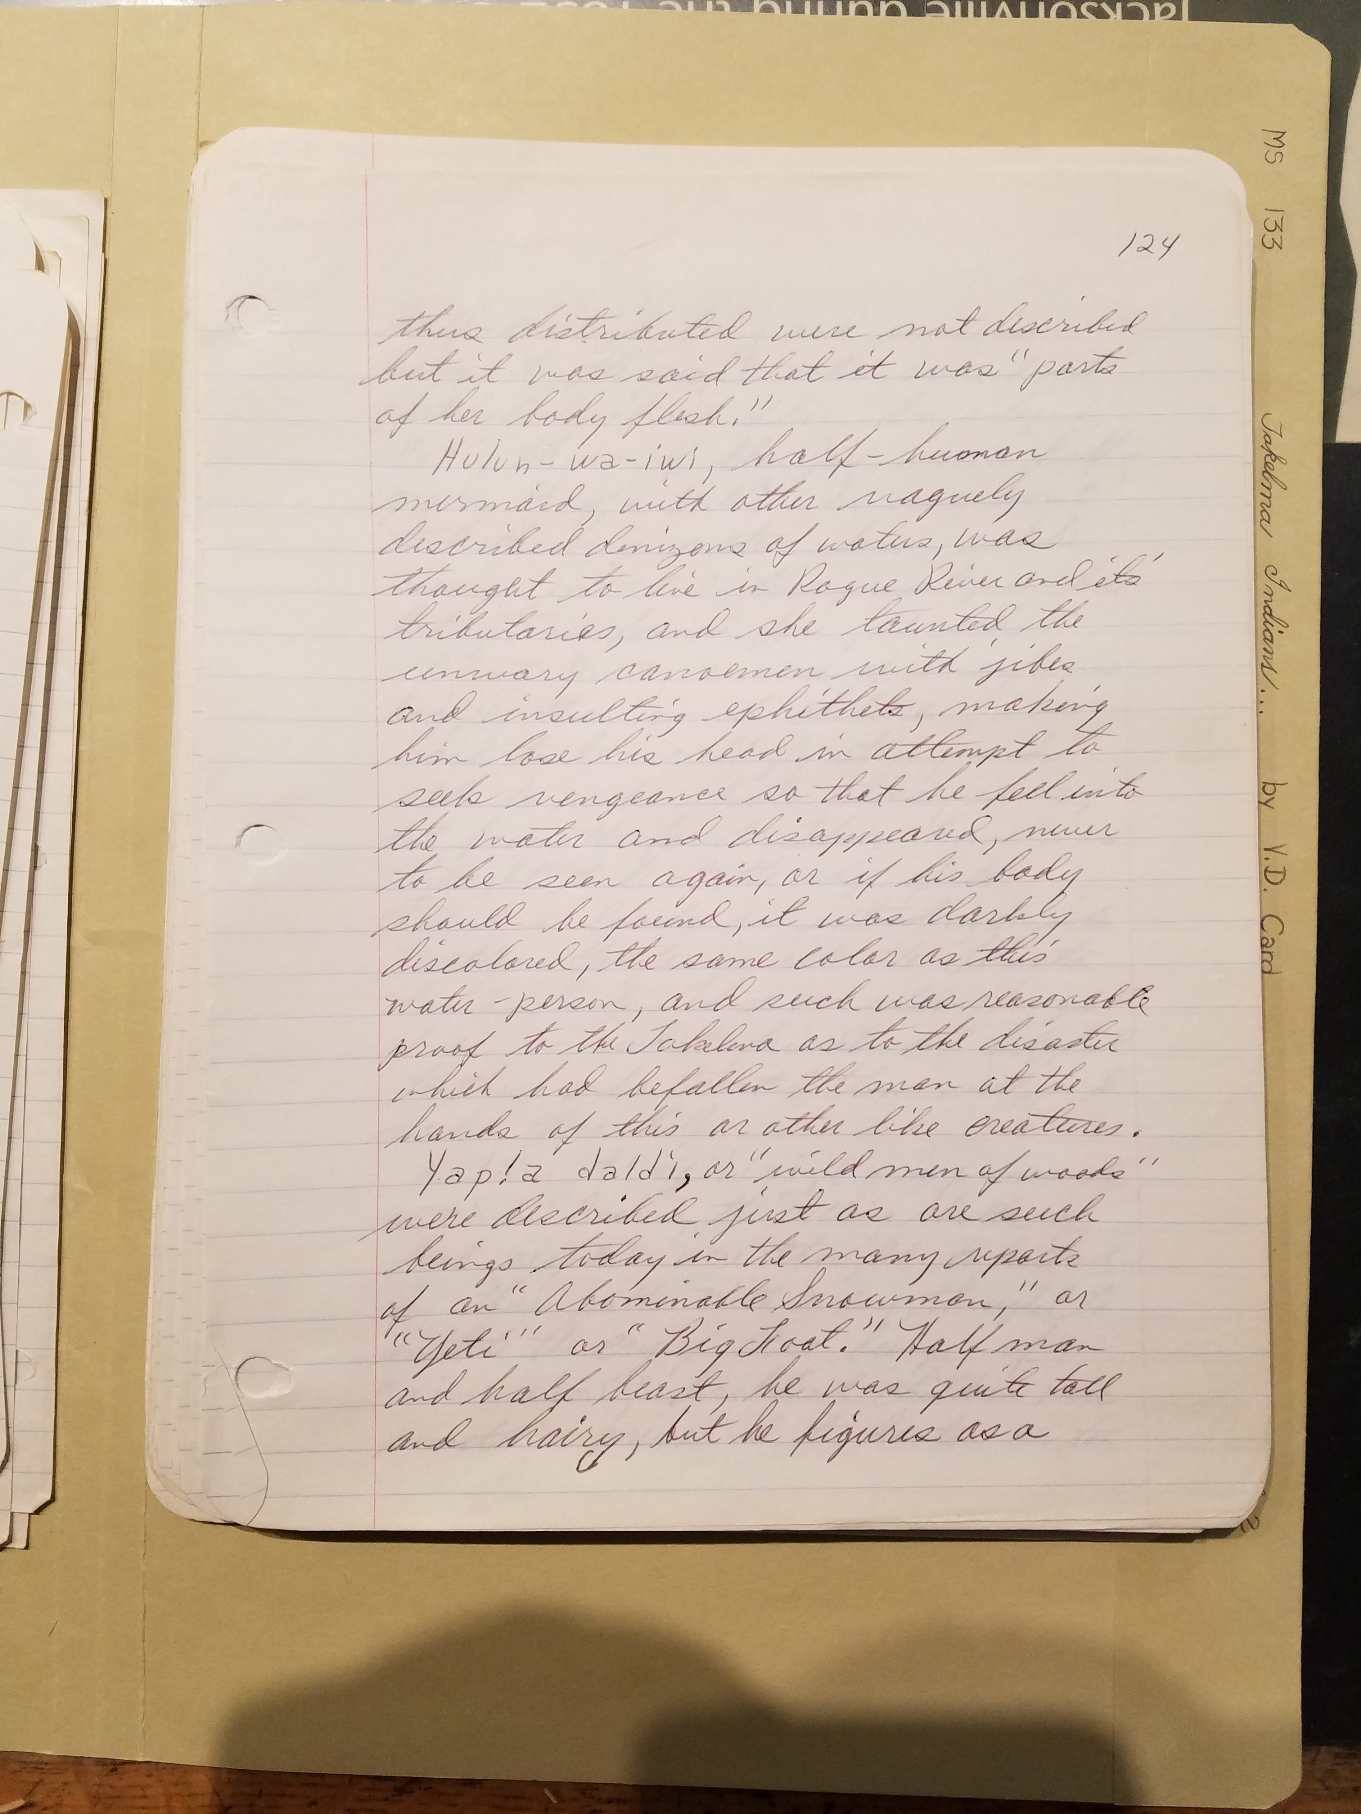 Jacksonville during the 1852
MS 133 Takelma Indians... by V.D. Card
124
thus distributed were not described
but it was said that it was "parts
of her body flesh."
Hulun-wa-iwi, half-human
mermaid, with other vaguely
described denizens of waters, was
thought to live in Rogue River and its'
tributaries, and she taunted the
unwary canoemen with jibes
and insulting ephithets, making
him lose his head in attempt to
seek vengeance so that he fell into
the water and disappeared, never
to be seen again, or if his body
should be found, it was darkly
discolored, the same color as this
water-person, and such was reasonable
proof to the Takelma as to the disaster
which had befallen the man at the
hands of this or other like creatures.
Yap!a daldi, or "wild men of woods"
were described just as are such
beings today in the many reports
of an "Abominable Snowman," or
"Yeti" or "Big Foot." Half man
and half beast, he was quite tall
and hairy, but he figures as a